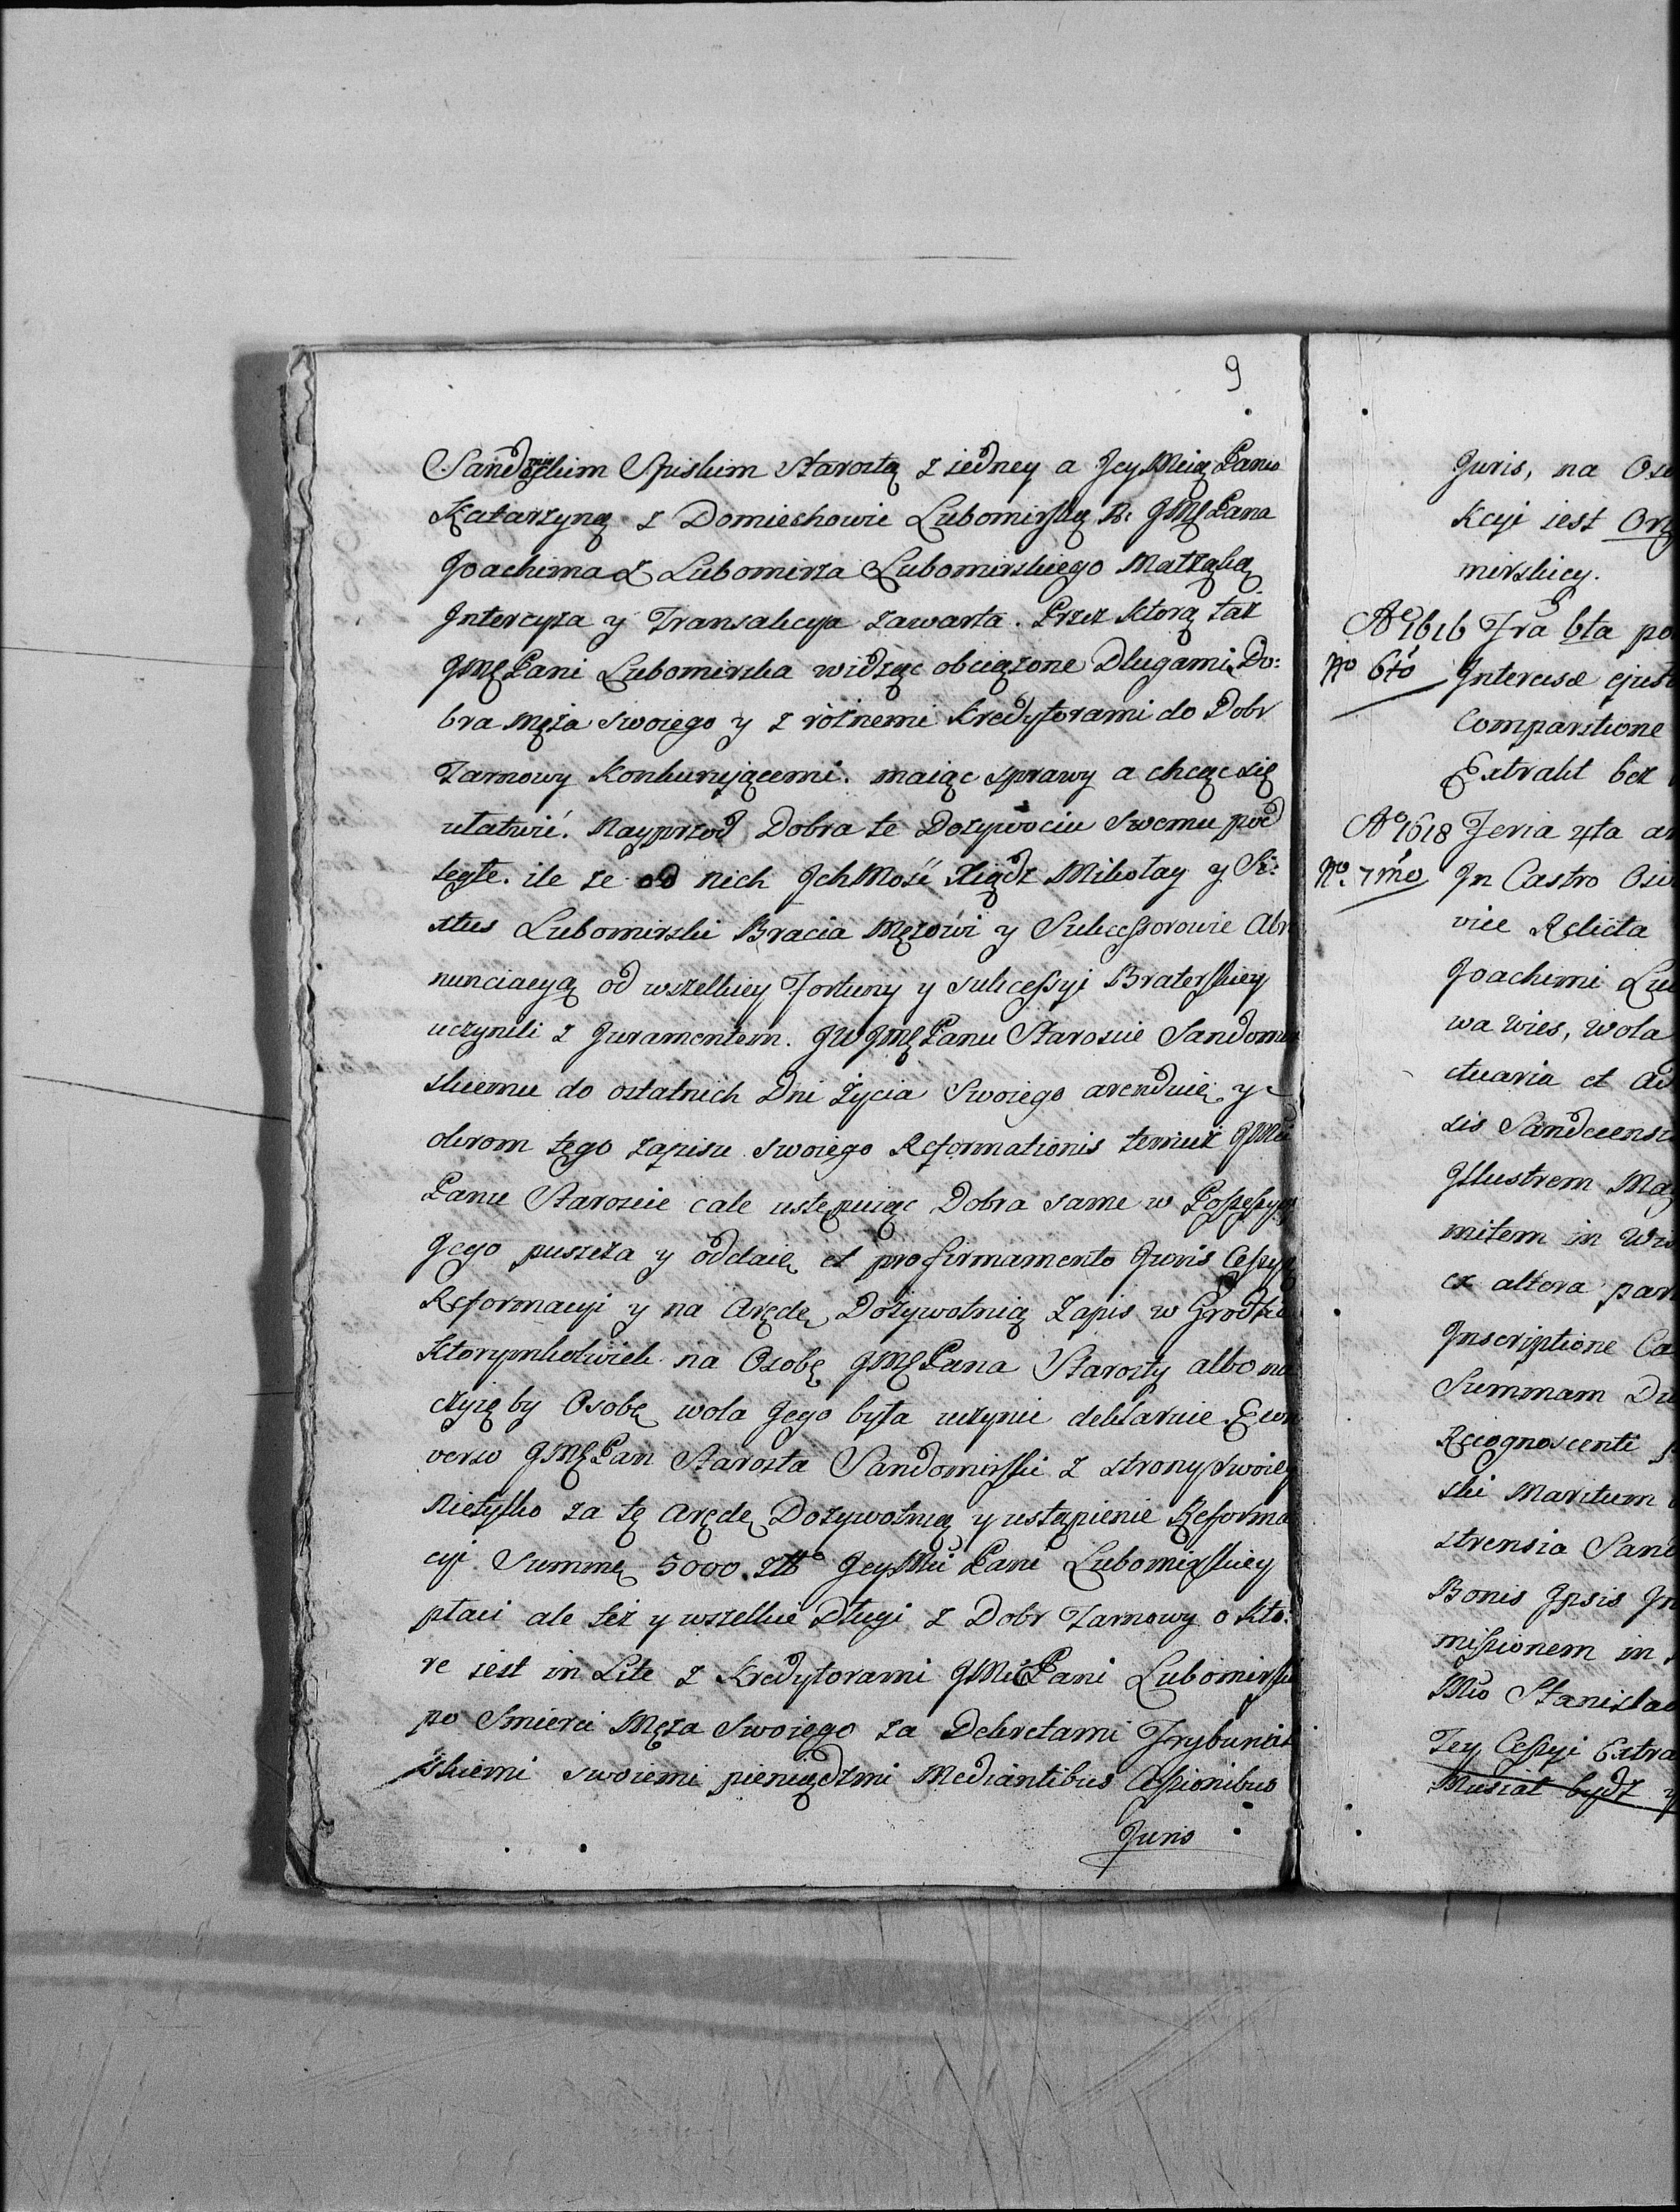 9
Sandomirskim Spiskim Starostą z iedney a Jey Mcią Panią
Katarzyną z Domiechowic Lubomirską JMę Pana
Joachima z Lubomirza Lubomirskiego Małżąką
Intercyza y Transakcya zawarta. Przez ktorą taż
JMę Pani Lubomirska widząc obciążone Długami Do:
bra Męża swoiego y z rożnemi Kredytorami do Dobr
Tarnowy Konkurującemi. maiąc sprawy a chcąc się
ułatwić. Nayprzod Dobra te Dożywociu Swemu pod
ległe. ile że od nich Jch Mość Xiądz Mikołay y Si:
xtus Lubomirski Bracia Mężowi y Sukcessorowie Abre
nunciacyą od wszelkiey Fortuny y sukcessyi Braterskiey
uczynili z Juramentem. JW JMę Panu Staroscie Sandomir
skiemu do ostatnich Dni życia Swoiego arenduię y
okrom tego zapisu swoiego Reformationis temuż JMci
Panu Staroscie cale ustępuiąc Dobra same w Possessyą
Jego puszcza y oddaie et pro firmamento Juris Cessyą
Reformacyi y na Arędę Dożywotnią Zapis w Grodzie
Ktorymkolwiek na Osobę JMę Pana Starosty albo na
czyię by Osobę wola Jego była uczynic deklaruie E con
verso JMę Pan Starosta Sandomirski z strony swoiey
Nietylko za tę Arędę Dożywotnią y ustąpienie Reforma
cyi Summę 5000. Jey Mci Pani Lubomirskiey
płaci ale też y wszelkie Długi z Dobr Tarnowy o Kto:
re iest in Lite z Kredytorami JMci Pani Lubomirska
po Smierci Męża Swoiego za Dekretami Trybunal
skiemi swoiemi pieniądzmi Mediantibus Cessionibus
Juris
Juris, na Oso
kcyi iest Ory
mirskiey.
Ao 1616 Fra 6ta po
No 6to Intercisæ ejus
Comparitione
Extrakt bez
Ao 1618 Feria 4ta a
No. 7mo In Castro
vice Relicta
Joachimi Lu
wa wies, Wola
ctuaria et
sis Sandecensi
Illustrem Mag
mitem in Wi
ex altera par
Inscriptione Ca
Summam Du
Recognoscenti
ski Maritum
strensia Sand
Bonis Ipsis In
missionem in
Mio Stanislao
Tey Cessyi Extra
Musiał bydz y